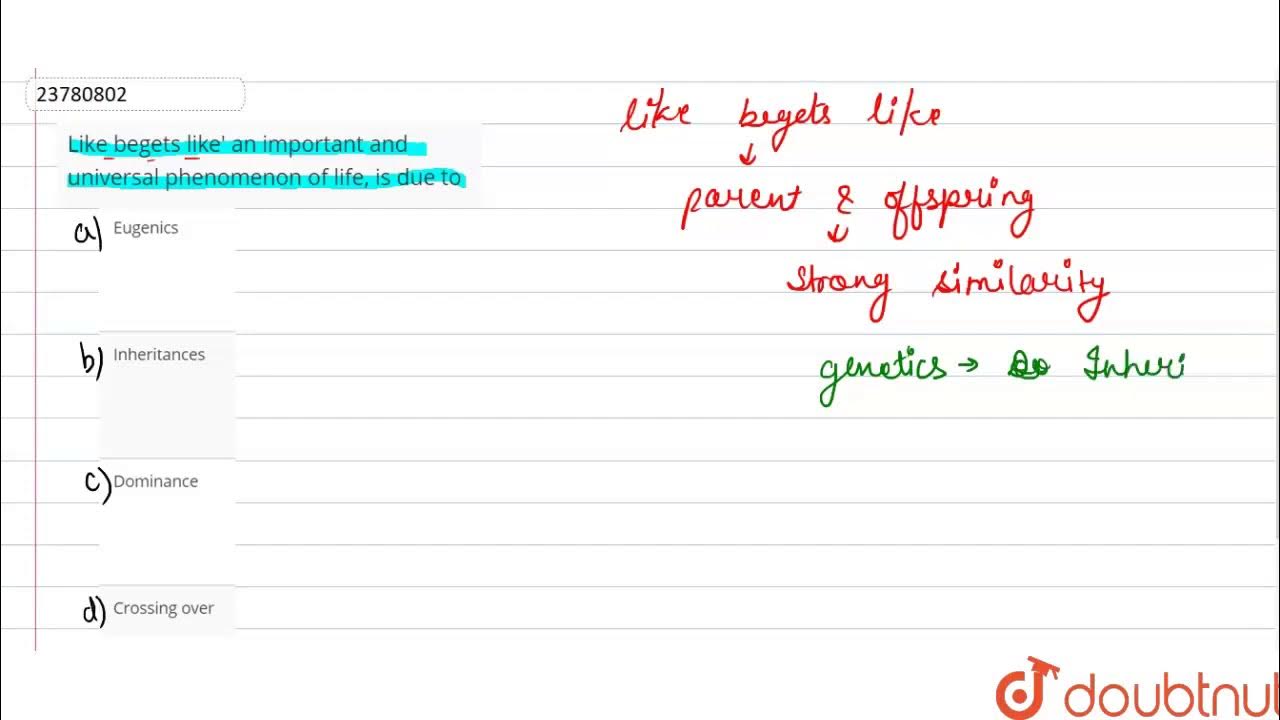 23780802
Like begets like' an important and
universal phenomenon of life, is due to
a) Eugenics
b) Inheritances
c) Dominance
d) Crossing over
like begets like
parent & offspring
strong similarity
genetics → Inheri
doubtnut